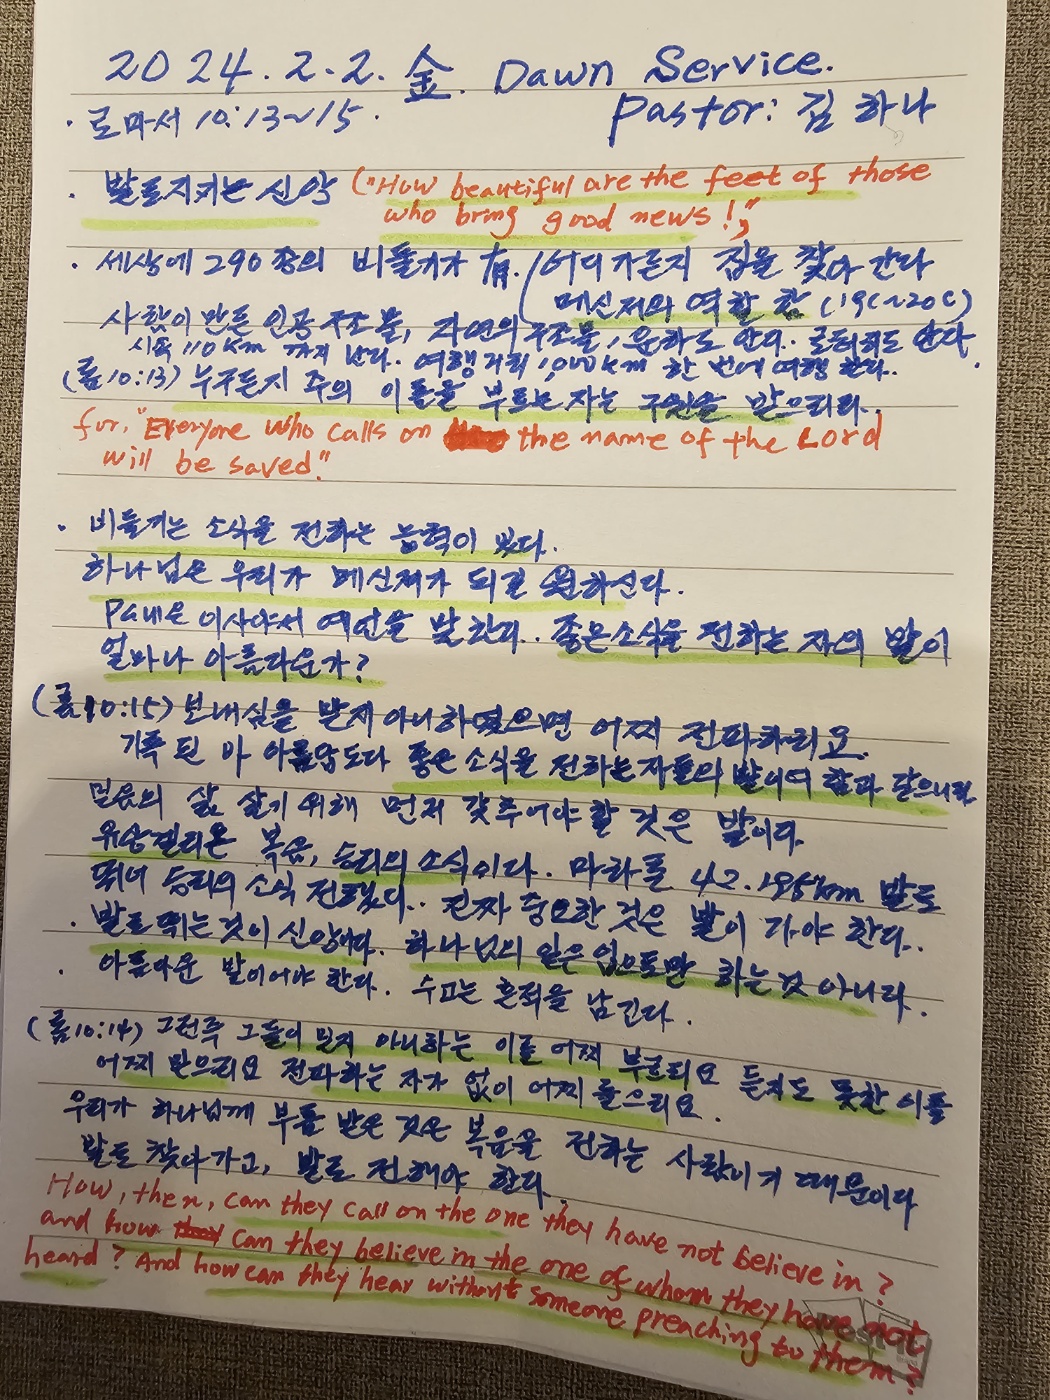 2024.2.2. 金. Dawn Service.
· 로마서 10:13~15. Pastor: 김 하나
· 발로지키는 신앙 ("How beautiful are the feet of those
who bring good news!",
· 세상에 290종의 비둘기가 有. 어디가든지 집을 찾아 간다
메신저의 역할 함 (19C~20C)
사람이 만든 인공구조물, 자연의구조물, 운하도 안다. 도 안다.
시속 110km 까지 난다. 여행거리 1,000km 한 번에 여행 한다..
(롬10:13) 누구든지 주의 이름을 부르는 자는 구원을 받으리라..
for, "Everyone who calls on the name of the Lord
will be saved."
· 비둘기는 소식을 전하는 능력이 있다.
하나님은 우리가 메신져가 되길 원하신다.
Paul은 이사야서 예언을 말한다.. 좋은소식을 전하는 자의 발이
얼마나 아름다운가?
(롬10:15) 보내심을 받지 아니하였으면 어찌 전파하리요.
기록 된 바 아름답도다 좋은 소식을 전하는자들의 발이여 함과 같으니라
믿음의 삶 살기 위해 먼저 갖추어야 할 것은 발이다.
유앙겔리온 복음, 승리의 소식이다. 마라톤 42.195km 발로
뛰어 승리의 소식 전했다.. 진짜 중요한 것은 발이 가야 한다..
· 발로 뛰는 것이 신앙이다. 하나님의 일은 입으로만 하는것 아니라.
· 아름다운 발이어야 한다. 수고는 흔적을 남긴다.
(롬10:14) 그런즉 그들이 믿지 아니하는 이를 어찌 부르리요 듣지도 못한 이를
어찌 믿으리요 전파하는 자가 없이 어찌 들으리요.
우리가 하나님께 부름 받은 것은 복음을 전하는 사람이기 때문이다
발로 찾아가고, 발로 전해야 한다.
How, then, can they call on the one they have not believe in?
and how can they believe in the one of whom they have not
heard? And how can they hear without someone preaching to them?